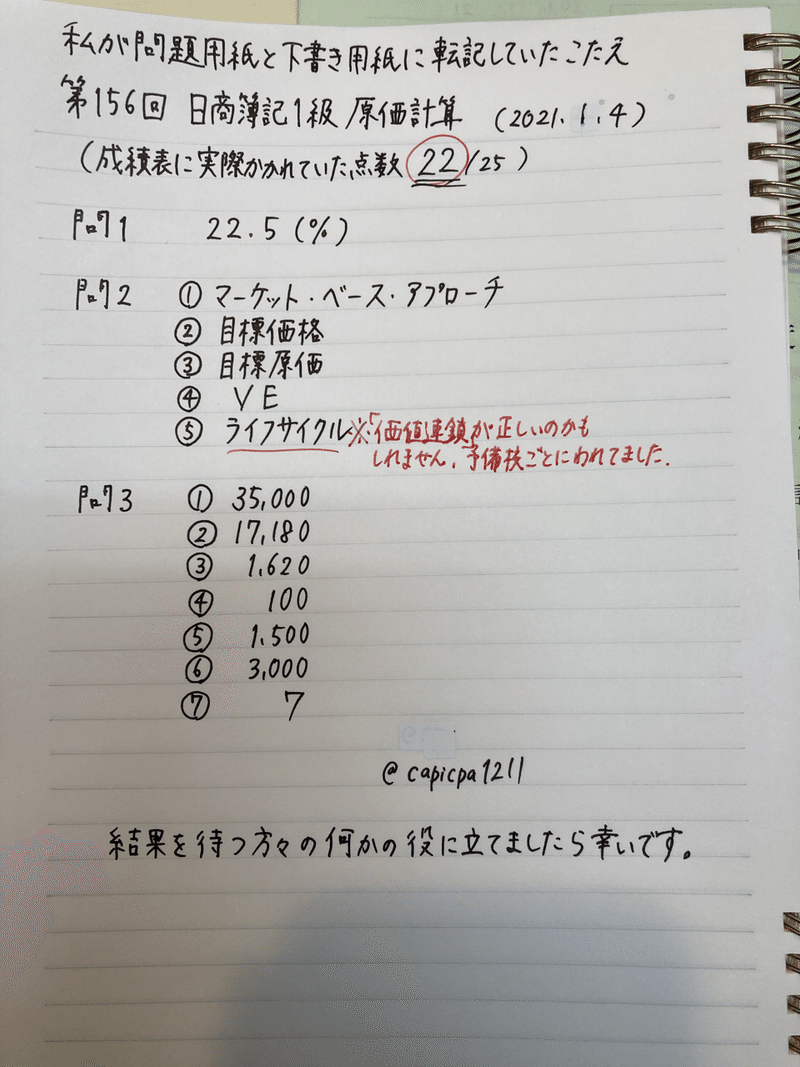 私が問題用紙と下書き用紙に転記していたこたえ
第156回 日商簿記1級 原価計算 (2021.1.4)
(成績表に実際かかれていた点数 22/25)
問1 22.5(%)
問2 ①マーケット・ベース・アプローチ
②目標価格
③目標原価
④VE
⑤ライフサイクル※「価値連鎖」が正しいのかも
しれません。予備校ごとにわれてました。
問3 ①35,000
②17,180
③1,620
④100
⑤1,500
⑥3,000
⑦7
@capicpa1211
結果を待つ方々の何かの役に立てましたら幸いです。